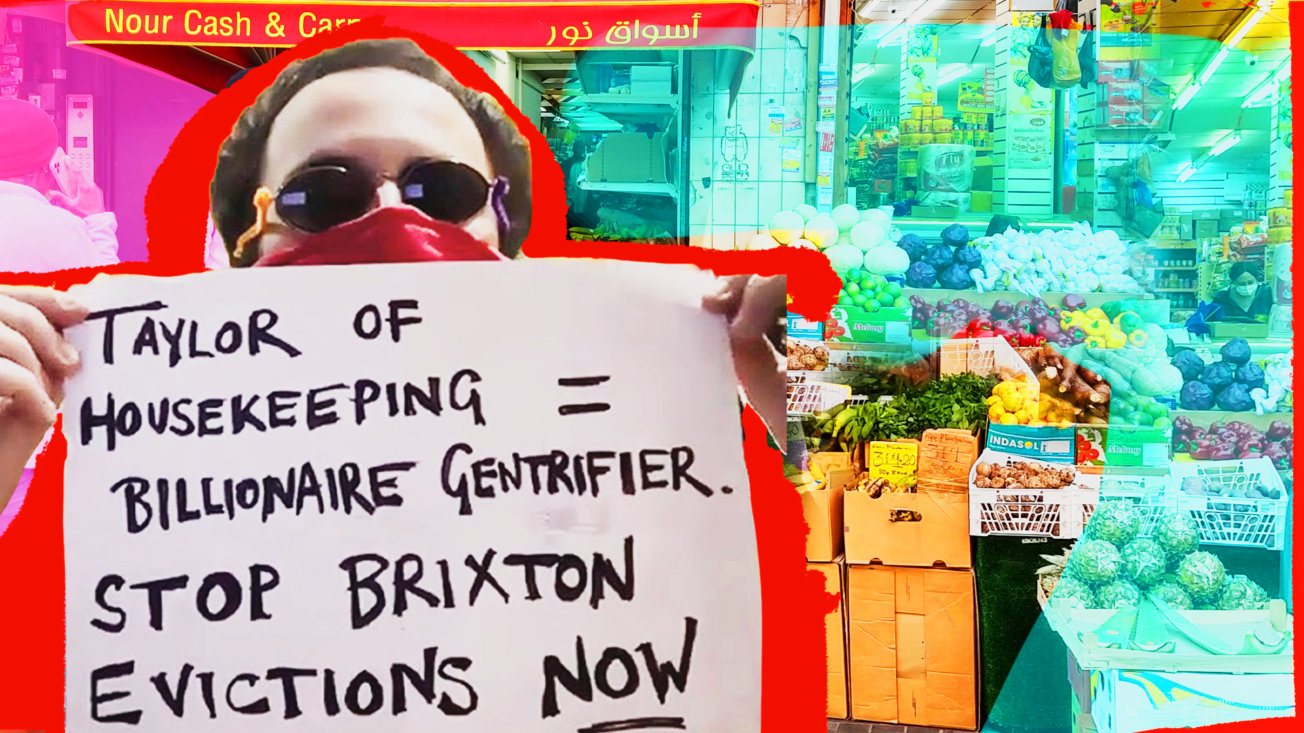 Nour Cash & Carr
أسواق نور
TAYLOR OF
HOUSEKEEPING =
BILLIONAIRE GENTRIFIER.
STOP BRIXTON
EVICTIONS NOW
INDASOL